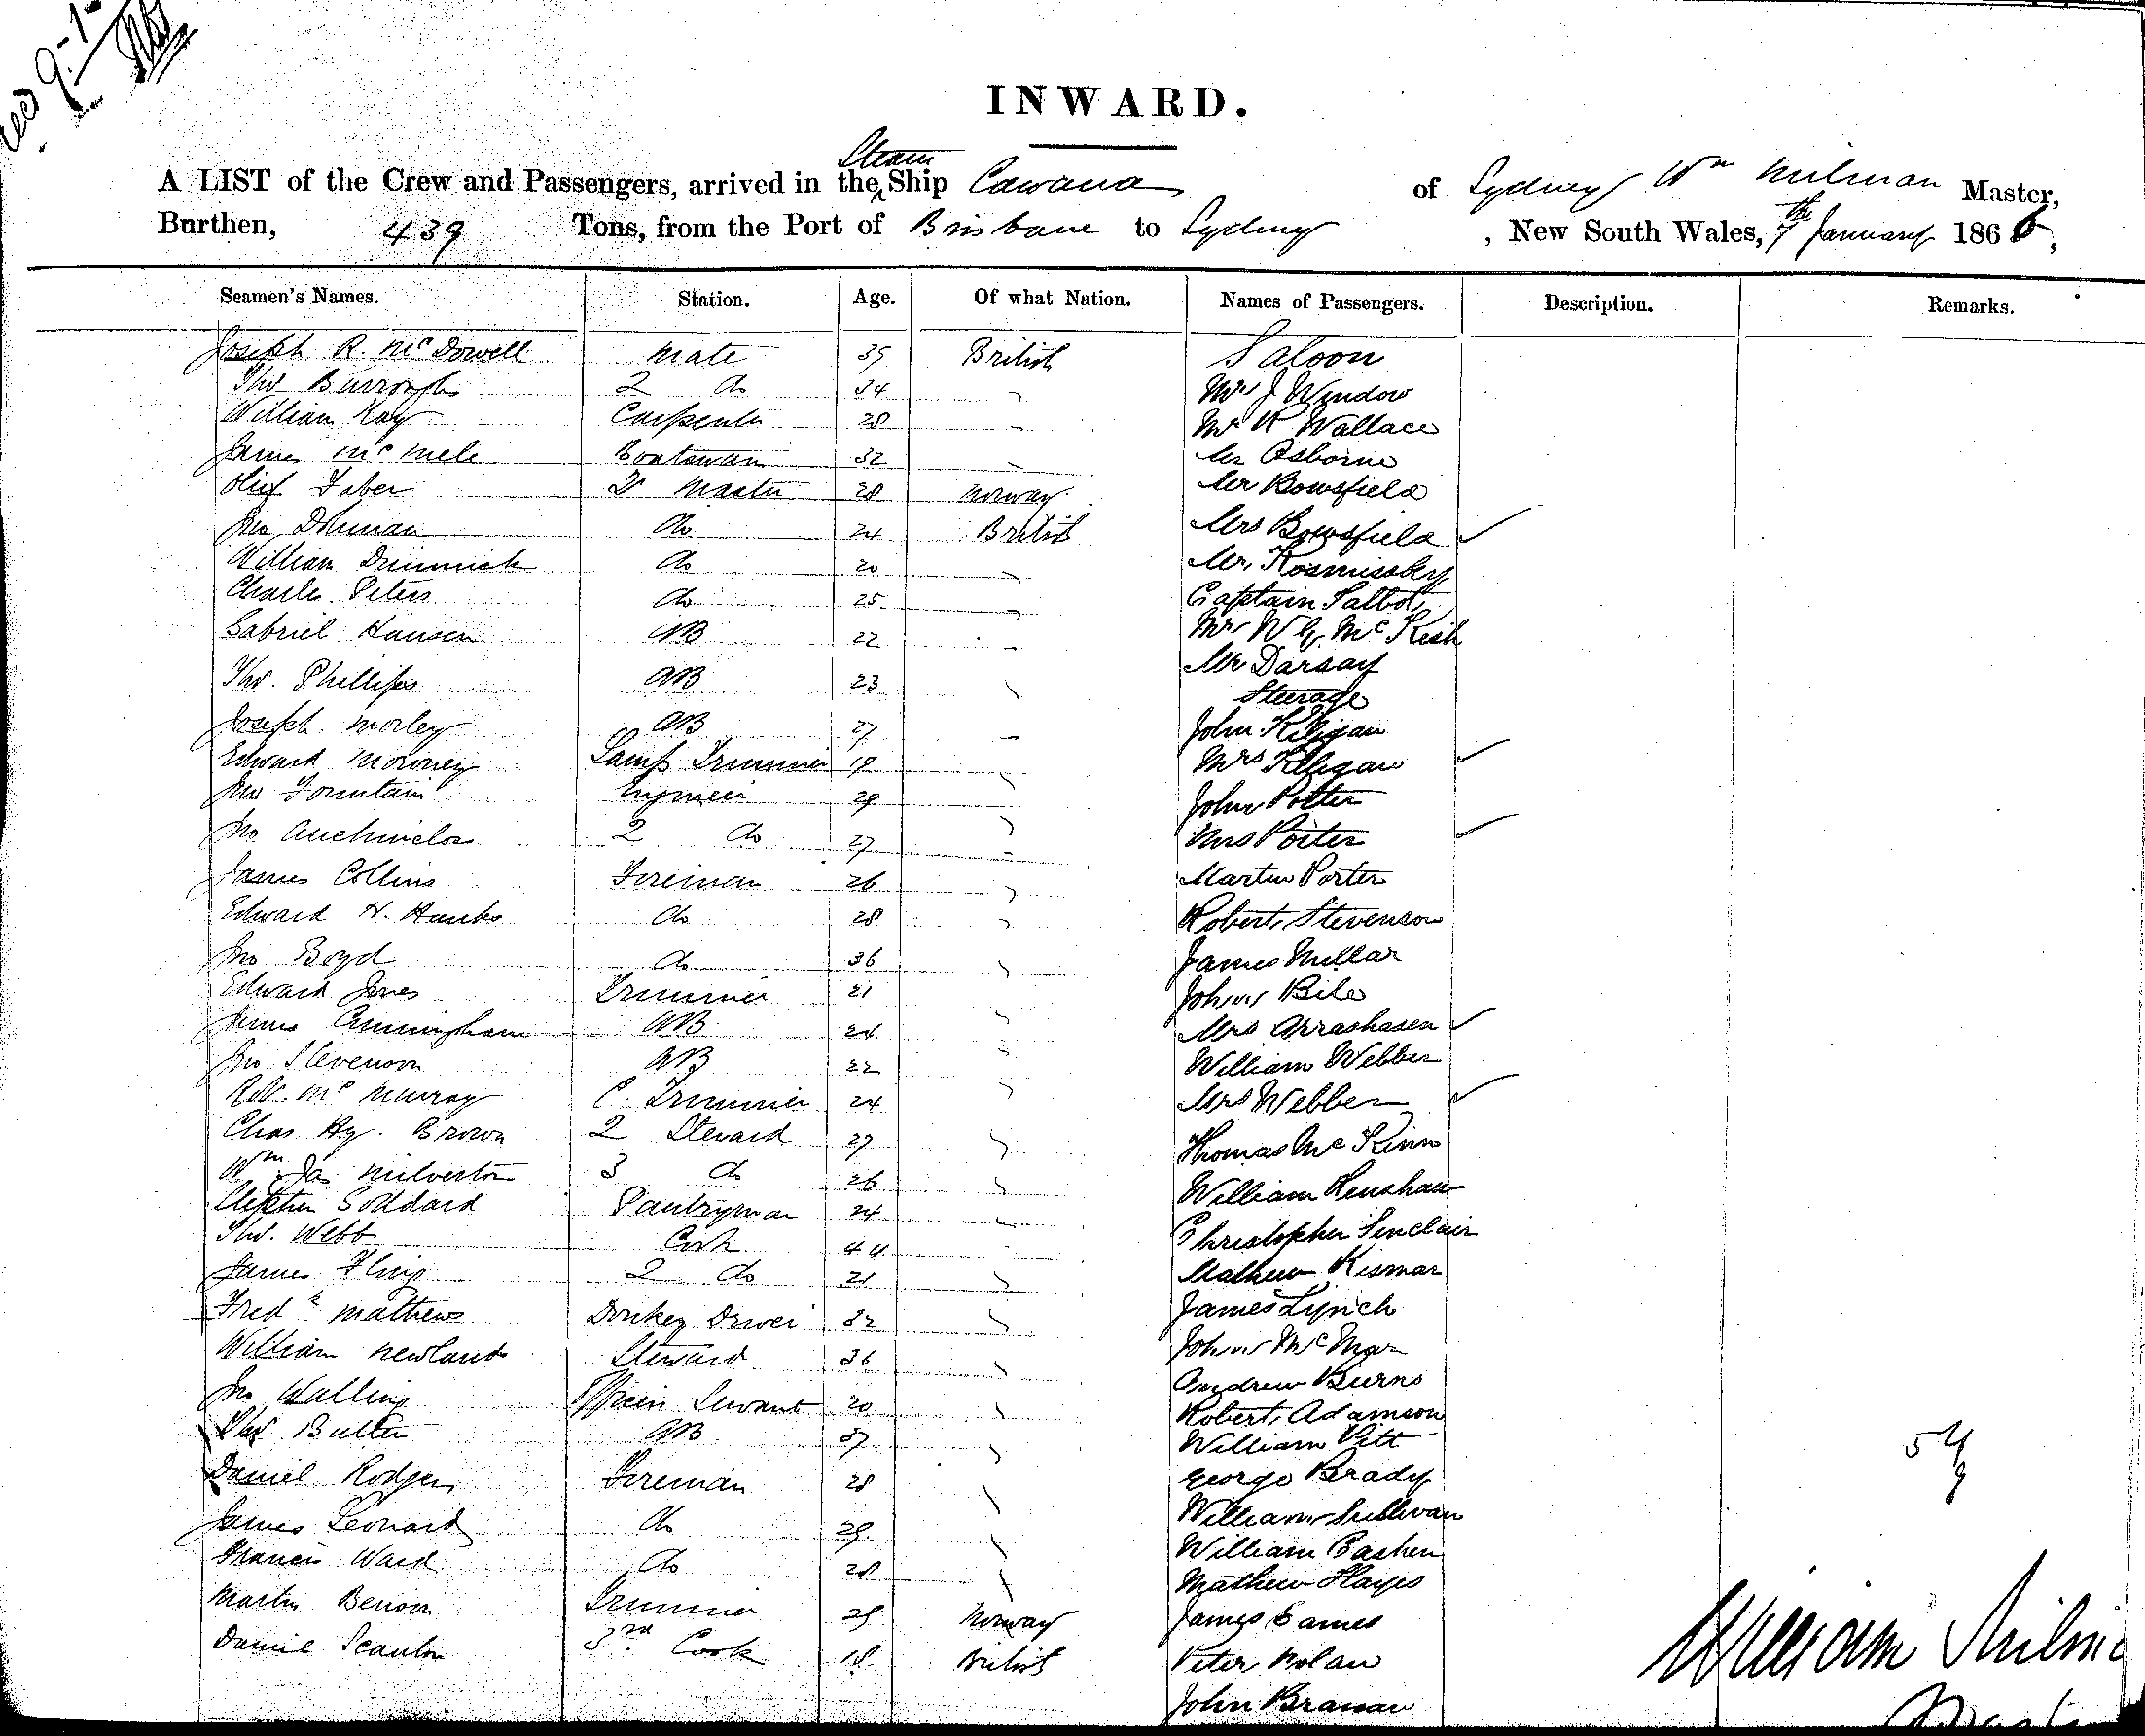 INWARD.
A LIST of the Crew and Passengers, arrived in the Steam Ship Cawana of Sydney Wm Milman Master,
Burthen, 439 Tons, from the Port of Brisbane to Sydney , New South Wales, 7th January 1866,
Seamen's Names. Station. Age. Of what Nation. Names of Passengers. Description. Remarks.
Joseph R. McDowell Mate 35 British Saloon
Thos Burroughs 2 do 34 " Mrs J Window
William Kay Carpenter 28 " Mr R Wallace
James McMele Boatswain 32 " Mr Osborne
Olief Faber Qr Master 28 Norway Mr Bowsfield
Jno Dohman do 24 British Mrs Bowsfield
William Dimmick do 20 " Mr.
Charles Peters do 25 " Captain Talbot
Gabriel Hansen AB 22 " Mr W G McKish
Thos. Phillips AB 23 " Mr Darsay
Steerage
Joseph Morley AB 27 " John Kiligan
Edward Moroney Lamp Trimmer 19 " Mrs Kiligan
Jno Fountain Engineer 29 " John Potter
Jno 2 do 27 " Mrs Porter
James Collins Fireman 26 " Martin Porter
Edward H. Hanks do 28 " Robert Stevenson
Jno Boyd do 36 " James Millar
Edward Jones Trimmer 21 " John Bile
James Cunningham AB 24 " Mrs Arrashasen
Jno Stevenson AB 22 " William Webber
Rob. McMurray C. Trimmer 24 " Mrs Webber
Chas Hy. Brown 2 Steward 27 " Thomas McKinn
Wm Jas Milverton 3 do 26 " William Henshaw
Stephen Goddard Pantryman 24 " Christopher Sinclair
Thos. Webb Cook 44 " Mathew Kismar
James Fling 2 do 21 " James Lynch
Fredk Mathews Donkey Driver 32 " John McMar
William Newlands Steward 36 " Andrew Burns
Jno Walling Officers Servant 20 " Robert Adamson
Thos Butler AB 37 " William Pitt
Daniel Rodgers Fireman 28 " George Brady
James Leonard do 29 " William Sullivan
Francis Ward do 28 " William Bashen
Mathew Hayes
Martin Benson Trimmer 25 Norway James Eames
Daniel Scanlon 3rd Cook 18 British Peter Nolan
John Branan
William Milman
Master